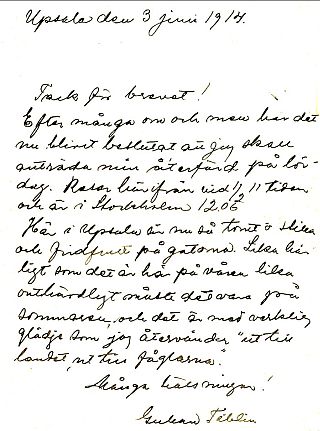 Upsala den 3 juni 1914.
Tack för brevet!
Efter många om och men har det
nu blivit beslutat att jag skall
anträda min återfärd på lör-
dag. Reser härifrån vid 11 tiden
och är i Stockholm 12.06
Här i Upsala är nu så tomt o stilla
och fridfullt på gatorna. Lika här-
ligt som det är här på våren lika
outhärdligt måste det vara på
sommaren, och det är med verklig
glädje som jag återvänder "ut till
landet, ut till fåglarna".
Många hälsningar!